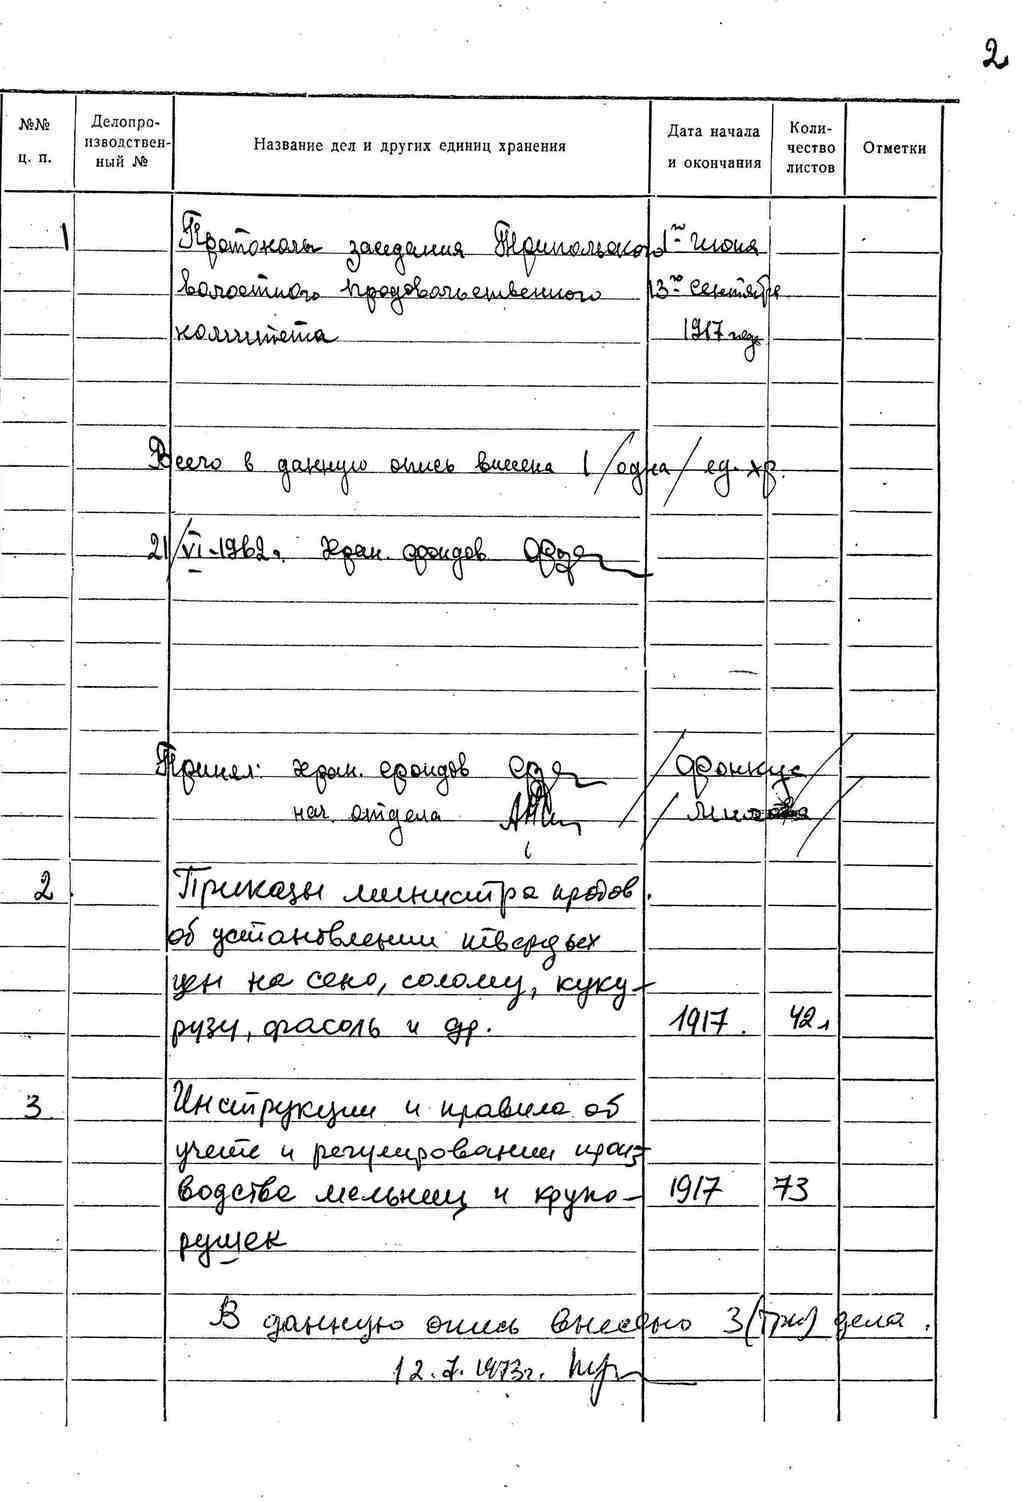 2
№№ ц. п.
Делопро-
изводствен-
ный №
Название дел и других единиц хранения
Дата начала
и окончания
Коли-
чество
листов
Отметки
1 Протоколы заседания Трипольского 1го июня
волостного продовольственного 13го сентября
комитета 1917 года
Всего в данную опись внесена 1 /одна/ ед. хр.
21/VI-1962г. Хран. фондов
Принял: Хран. фондов
нач. отдела
2 Приказы министра продов.
об установлении твердых
цен на сено, солому, куку-
рузу, фасоль и др. 1917. 42л
3 Инструкции и правила об
учете и регулировании произ
водства мельниц и крупо- 1917 73
рушек
В данную опись внесено 3 (три) дела.
12.7.1973г.